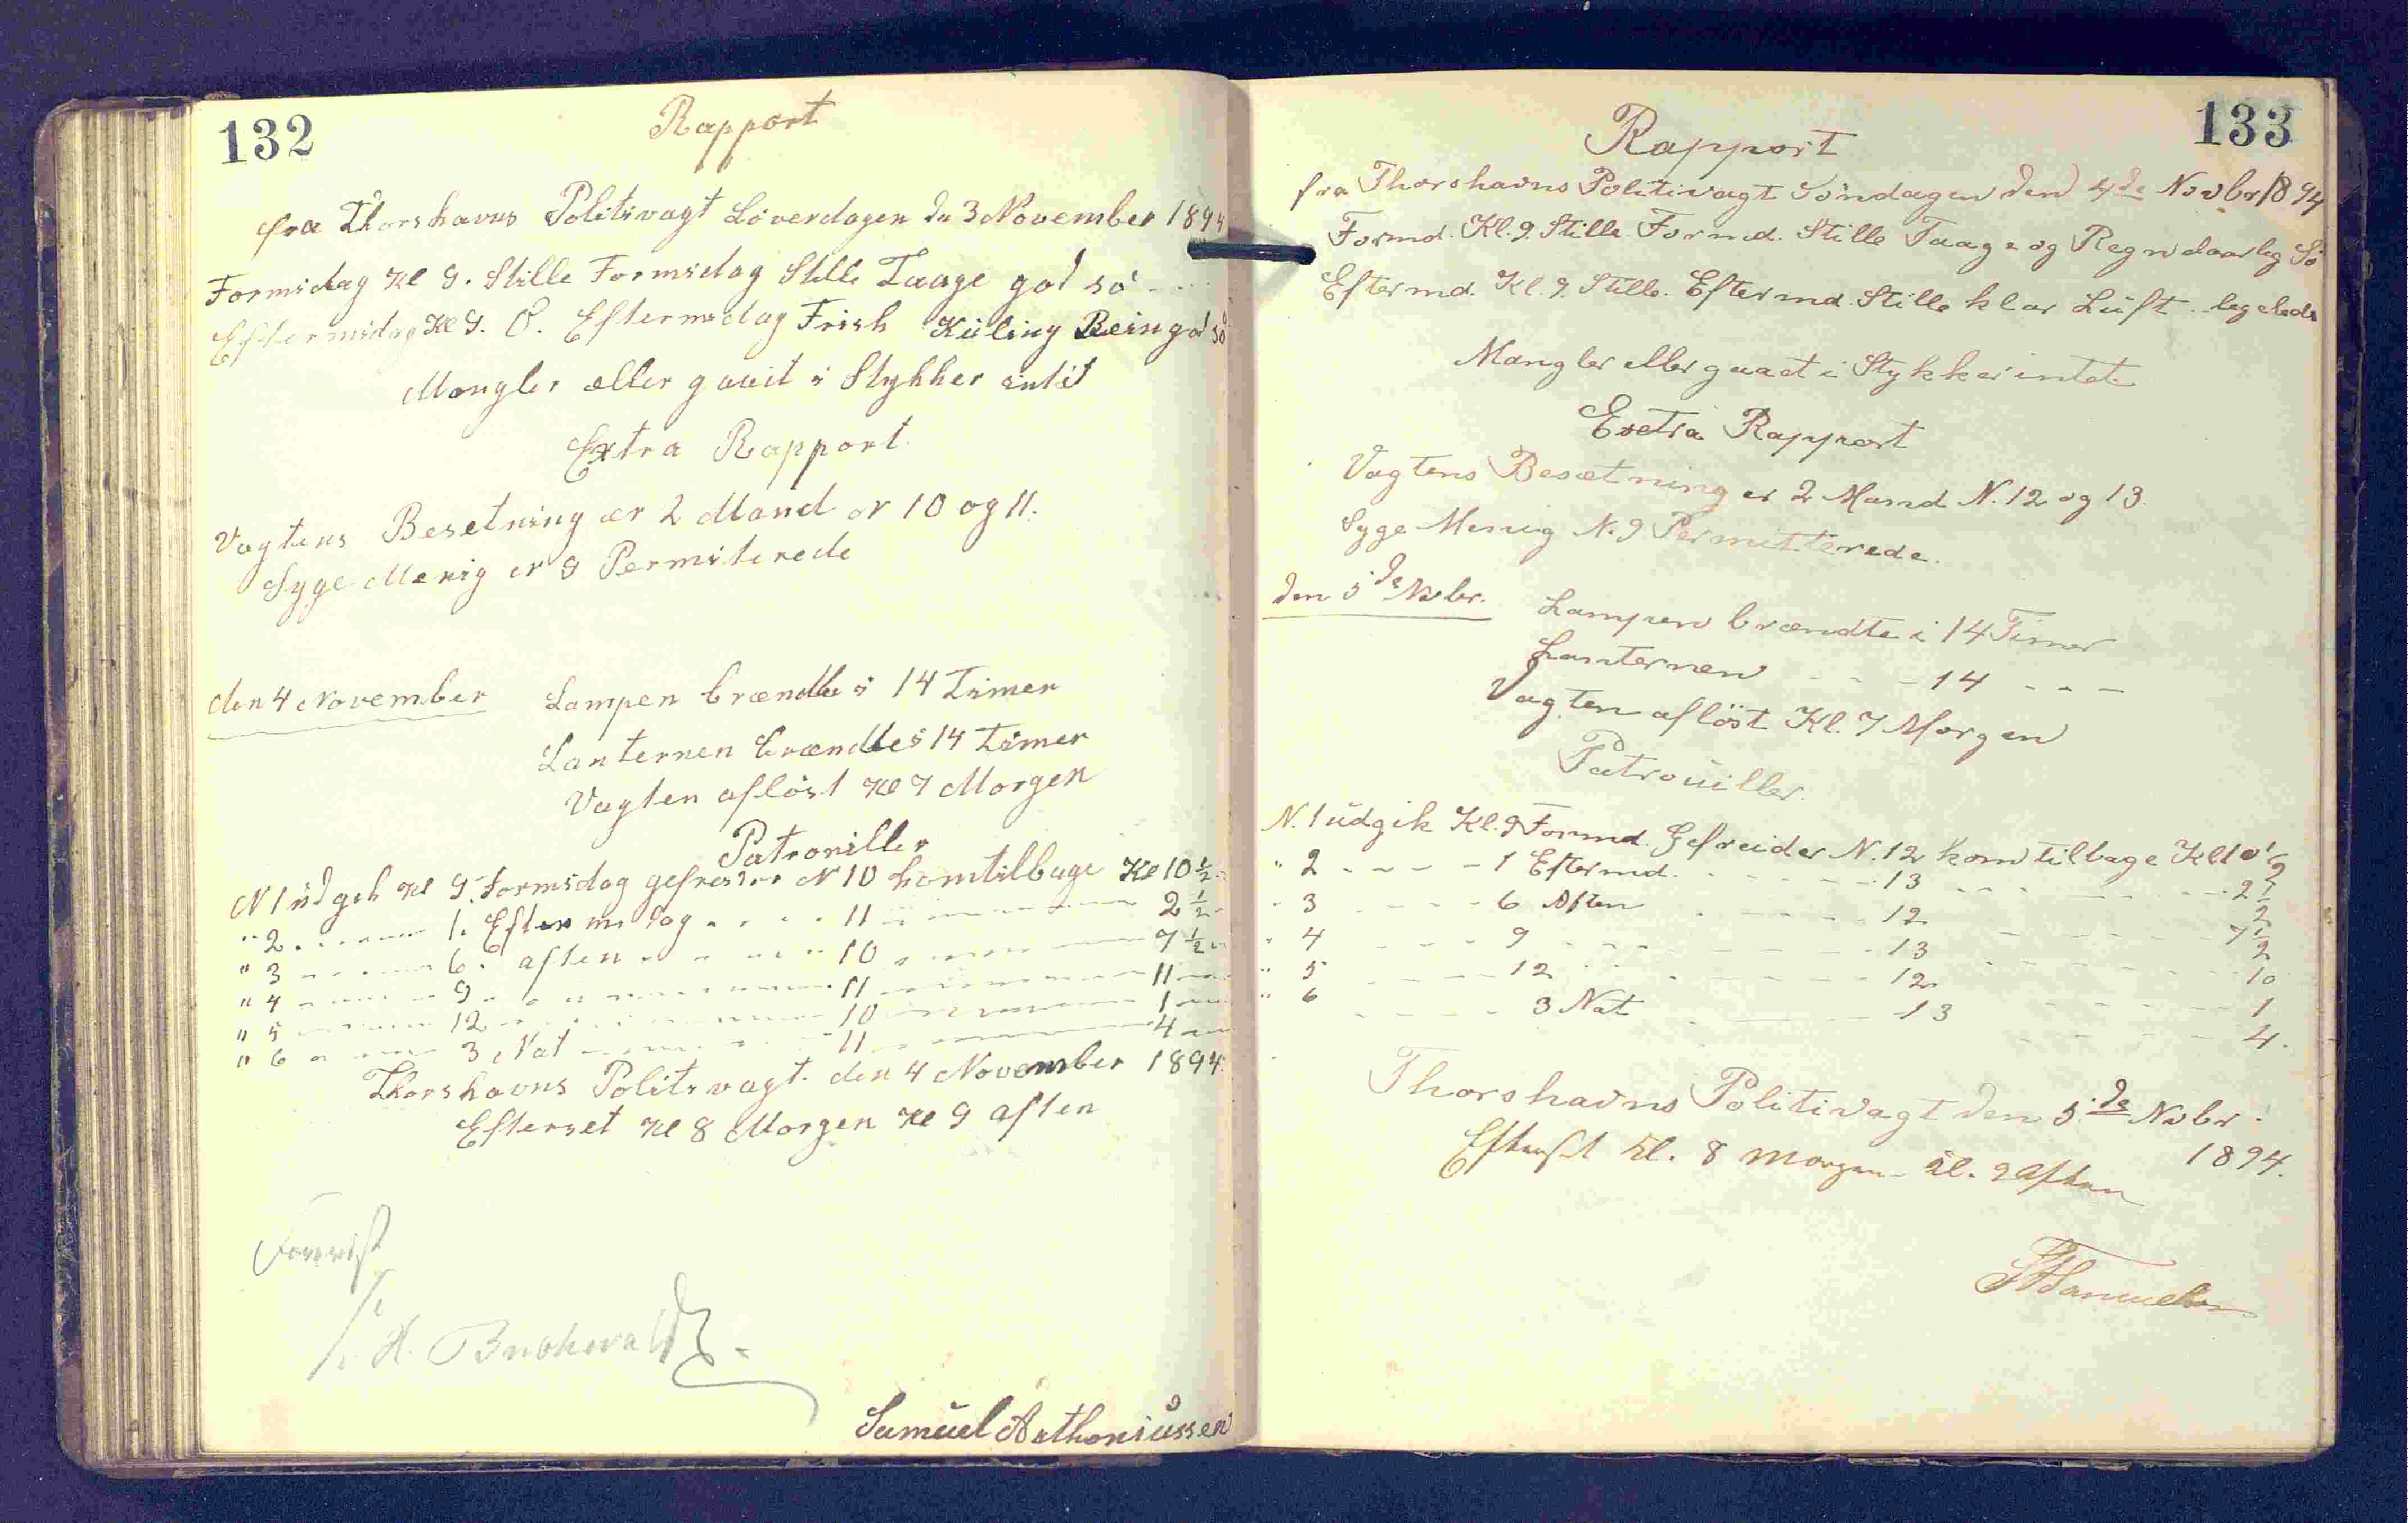 132
Rapport
fra Thorshavns Politivagt Löverdagen Den 3 November 1894
Formidag Kl 9. Stille Formidag Stille Taage god sö
Eftermidag Kl 9. O. Eftermidag Frisk Küling Rein god sö
Mangler æller gaaet i Stykker intit
Extra Rapport
Vagtens Besetning ær 2 Mand Nr 10 og 11.
Syge Menig Nr 9 Permiterede
den 4 November Lampen brændte i 14 Timer
Lanternen brændte i 14 Timer
Vagten aflöst Kl 7 Morgen
Patroniller
N 1 üdgik Kl 9. Formidag gefreider N 10 komtilbage Kl 10 1/2
" 2 - - - 1. Eftermidag - - - 11 - - - 2 1/2
" 3 - - - 6. aften - - - 10 - - - 7 1/2
" 4 - - - 9 - - - 11 - - - 11
" 5 - - - 12 - - - 10 - - - 1
" 6 - - - 3 Nat - - - 11 - - - 4
Thorshavns Politivagt. den 4 November 1894
Efterset Kl 8 Morgen Kl 9 aften
Forevist
H. Buchwald
Samüel Anthoniüssen
133
Rapport
fra Thorshavns Politivagt Söndagen den 4de Novbr 1894
Formd. Kl. 9. Stille. Formd. Stille Taage og Regn daarlig Sö
Eftermd. Kl. 9. Stille. Eftermd. Stille klar Lüft. ligeleds
Mangler eller gaaet i Stykker intet.
Exctra Rapport
Vagtens Besætning er 2 Mand N. 12 og 13.
Syge Menig N. 9 Permitterede.
den 5de Novbr. Lampen brændte i 14 Timer
Lanternen - - - 14 - - -
Vagten aflöst Kl. 7 Morgen
Patroüiller.
N. 1 üdgik Kl. 9 Formd. Gefreider N. 12 kom tilbage Kl 10 1/2
" 2 - - - 1 Eftermd. - - - 13 - - - 2 1/2
" 3 - - - 6 Aften - - - 12 - - - 7 1/2
" 4 - - - 9 - - - 13 - - - 10
" 5 - - - 12 - - - 12 - - - 1
" 6 - - - 3 Nat - - - 13 - - - 4.
Thorshavns Politivagt den 5de Nvbr.
1894.
Efterset Kl. 8 Morgen Kl. 9 Aften